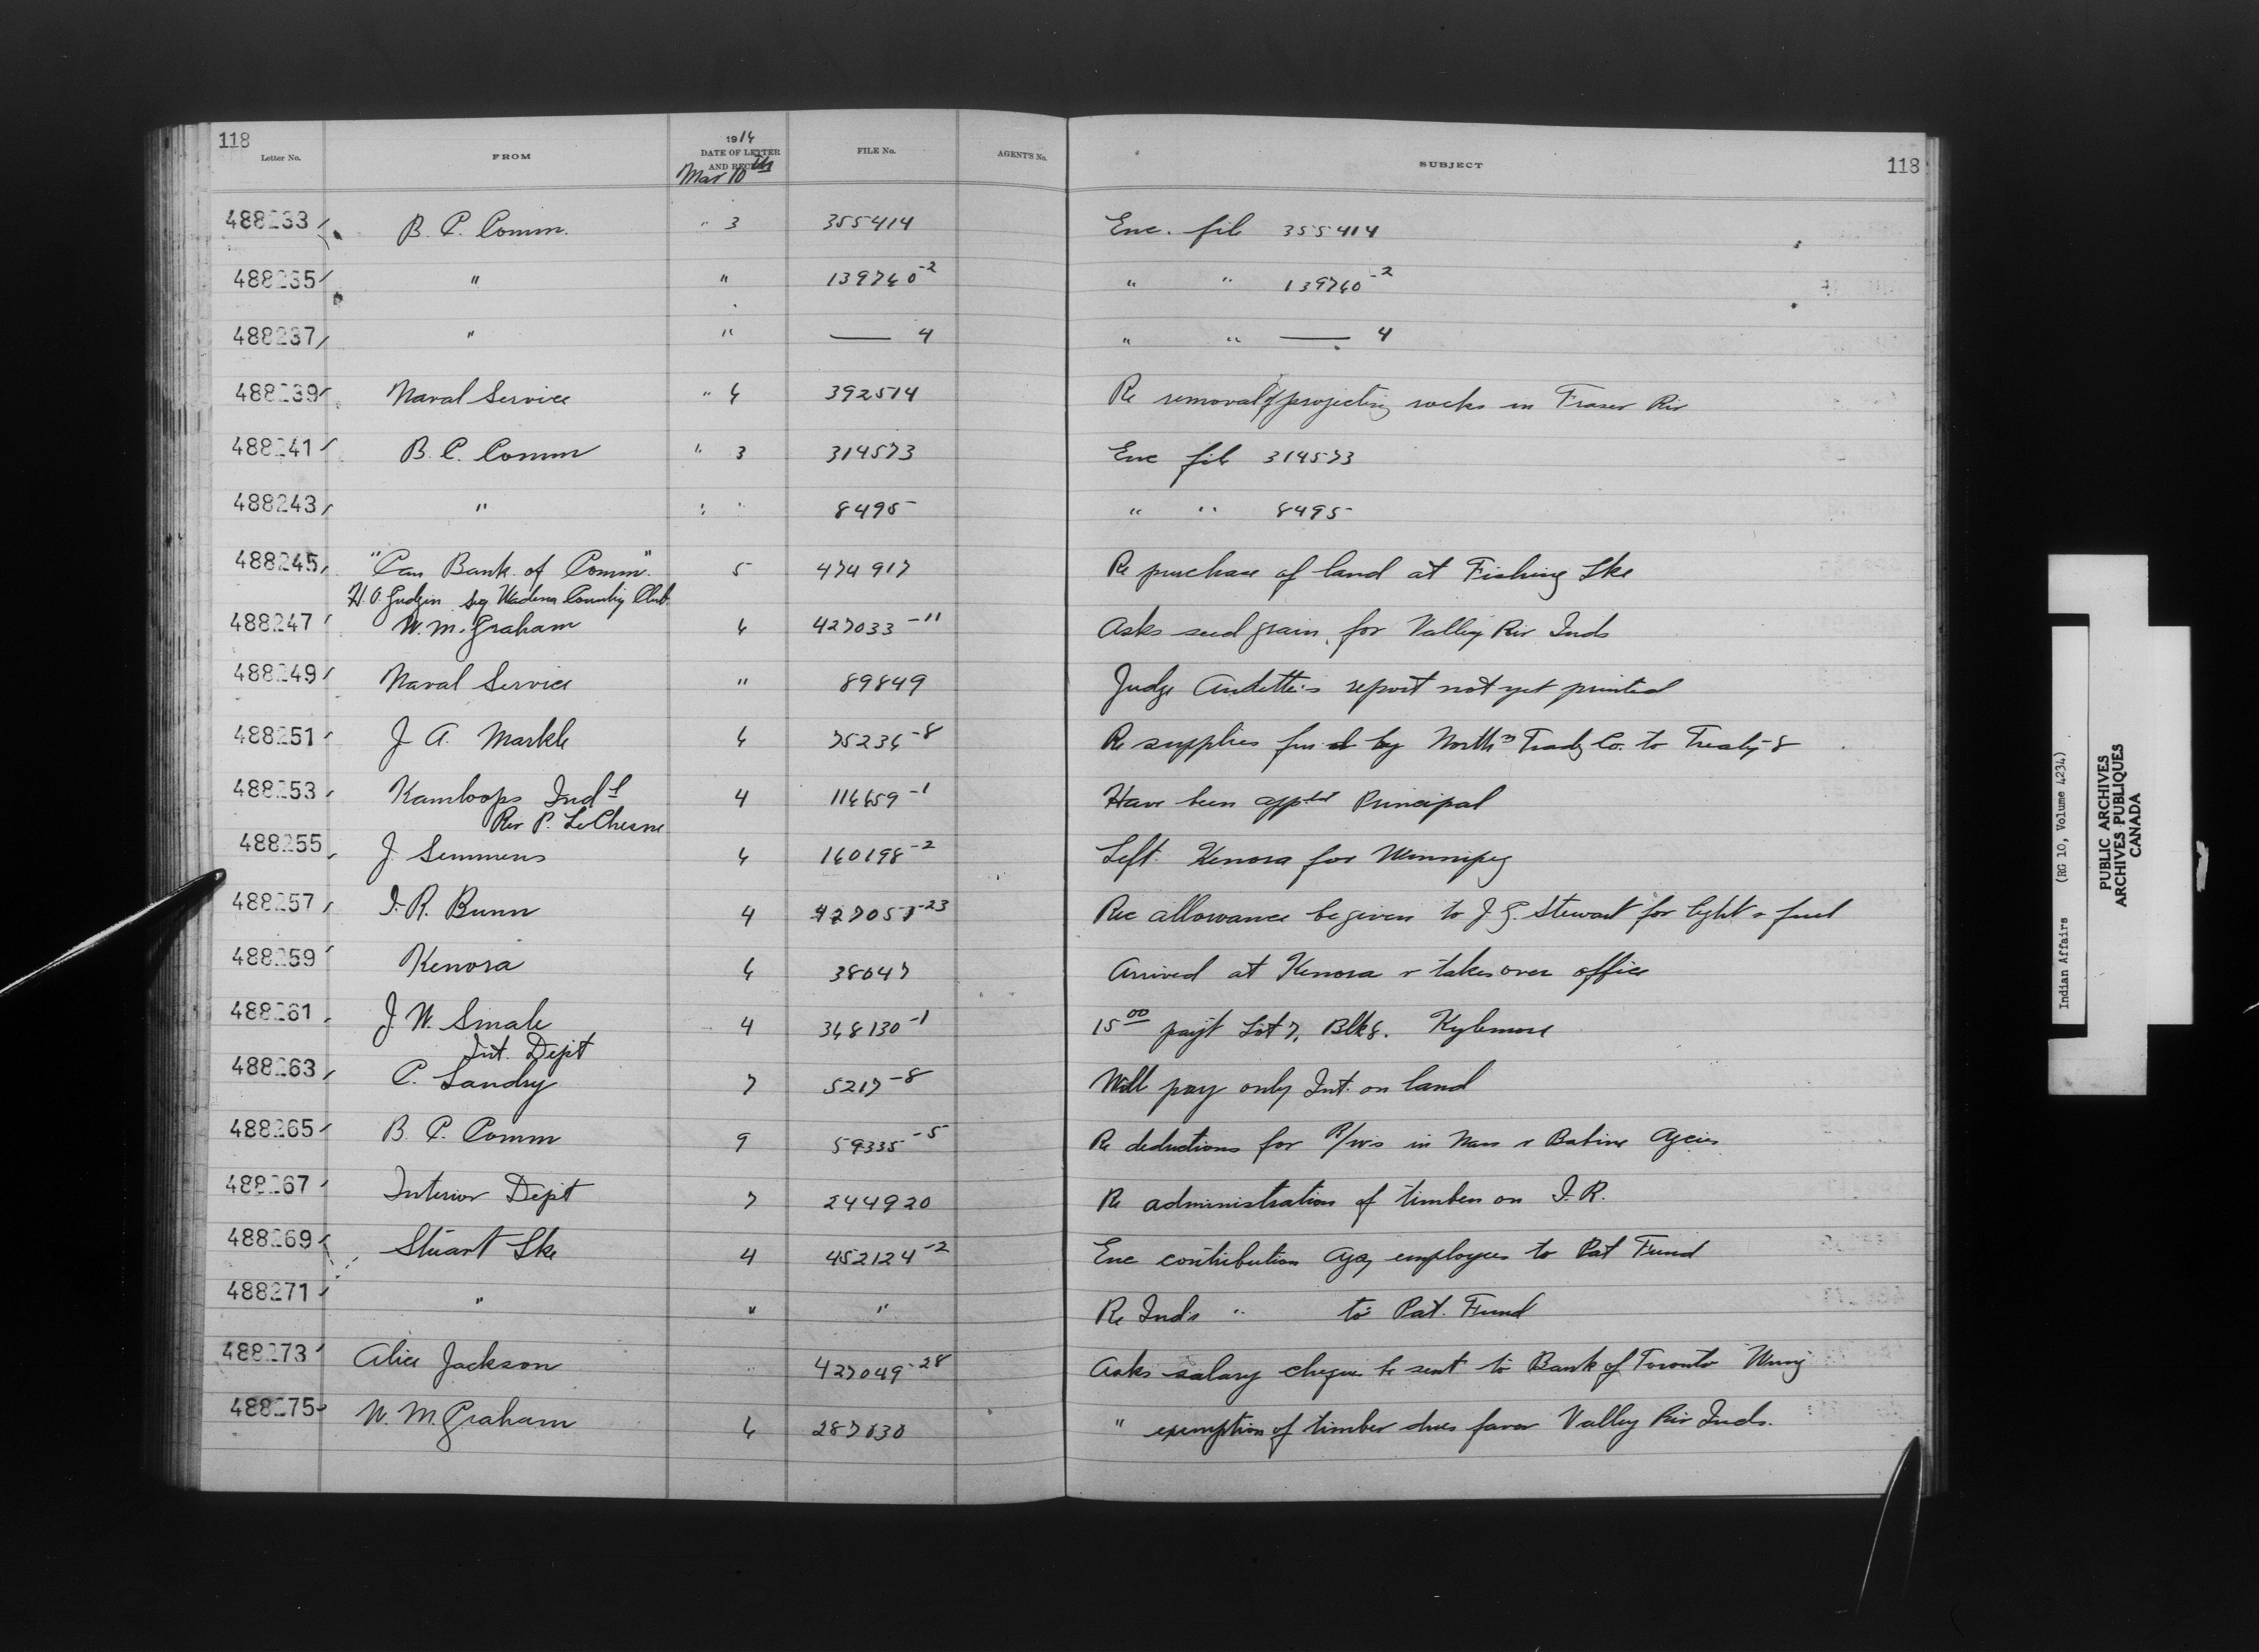 118
Letter No. FROM 1916 DATE OF LETTER AND RECEIPT FILE No. AGENT'S No. SUBJECT 118
Mar 10th
488233 B. C. Comm. " 3 355414 Enc. file 355414
488235 " " 139760-2 " " 139760-2
488237 " " —— 4 " " —— 4
488239 Naval Service " 6 392514 Re removal of projecting rocks in Fraser Riv
488241 B. C. Comm " 3 314573 Enc file 314573
488243 " " " 8495 " " 8495
488245 "Can Bank of Comm." 5 474917 Re purchase of land at Fishing Lke
H. O. Gudgin Wadena Country Club
488247 W. M. Graham 6 427033-11 Asks seed grain for Valley Riv Inds
488249 Naval Service " 89849 Judge Audette's report not yet printed
488251 J A. Markle 6 75236-8 Re supplies furd by Northn Tradg Co. to Treaty 8
488253 Kamloops Indl 4 116659-1 Have been appted Principal
Rev P. LeChesne
488255 J. Semmens 6 160198-2 Left Kenora for Winnipeg
488257 J. R. Bunn 4 427051-23 Rec allowance be given to J. G. Stewart for light & fuel
488259 Kenora 6 38047 Arrived at Kenora & takes over office
488261 J. W. Smale 4 368130-1 15 00 payt Lot 7, Blk 8. Kylemore
Int. Dept
488263 P. Landry 7 5217-8 Will pay only Int. on land
488265 B. C. Comm 9 59335-5 Re deductions for R/W's in Nass & Babine Agcies
488267 Interior Dept 7 244920 Re administration of timber on I. R.
488269 Stuart Lke 4 452124-2 Enc contribution Agcy employees to Pat Fund
488271 " " " Re Inds " to Pat. Fund
488273 Alice Jackson " 427049-28 Asks salary cheques be sent to Bank of Toronto Winng
488275 W. M Graham 6 287630 " exemption of timber dues favor Valley Riv Inds.
Indian Affairs (RG 10, Volume 4234)
PUBLIC ARCHIVES
ARCHIVES PUBLIQUES
CANADA